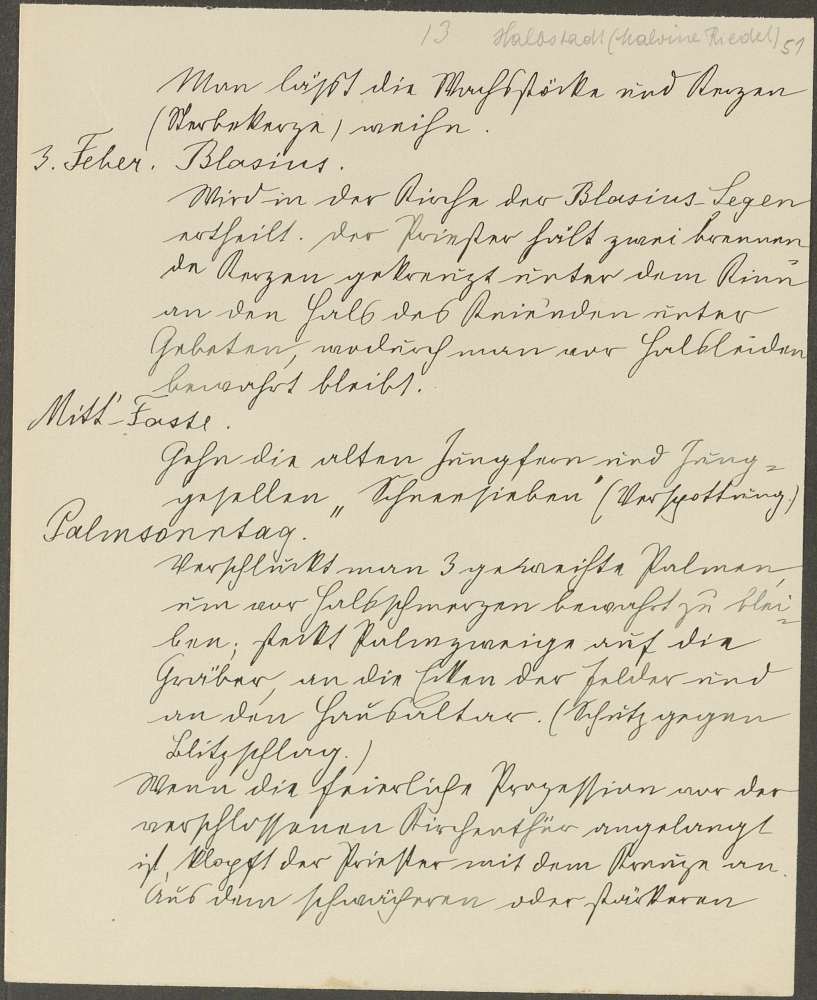 13 Halbstadt (Malvine Riedel) 51
Man läßt die Wachsstöcke und Kerzen
(Sterbekerze) weihn.
3. Feber. Blasius.
Wird in der Kirche der Blasius-Segen
ertheilt. Der Priester hält zwei brennen-
de Kerzen gekreuzt unter dem Kinn
an den Hals des Knie'nden unter
Gebeten, wodurch man vor Halsleiden
bewahrt bleibt.
Mitt'-Faste.
Gehn die alten Jungfern und Jung-
gesellen „Schneesieben" (Verspottung.)
Palmsonntag.
Verschluckt man 3 geweihte Palmen,
um vor Halsschmerzen bewahrt zu blei-
ben; steckt Palmzweige auf die
Gräber, an die Ecken der Felder und
an den Hausaltar. (Schutz gegen
Blitzschlag.)
Wenn die feierliche Prozession vor der
verschlossenen Kirchenthür angelangt
ist, klopft der Priester mit dem Kreuze an.
Aus dem schwächeren oder stärkeren